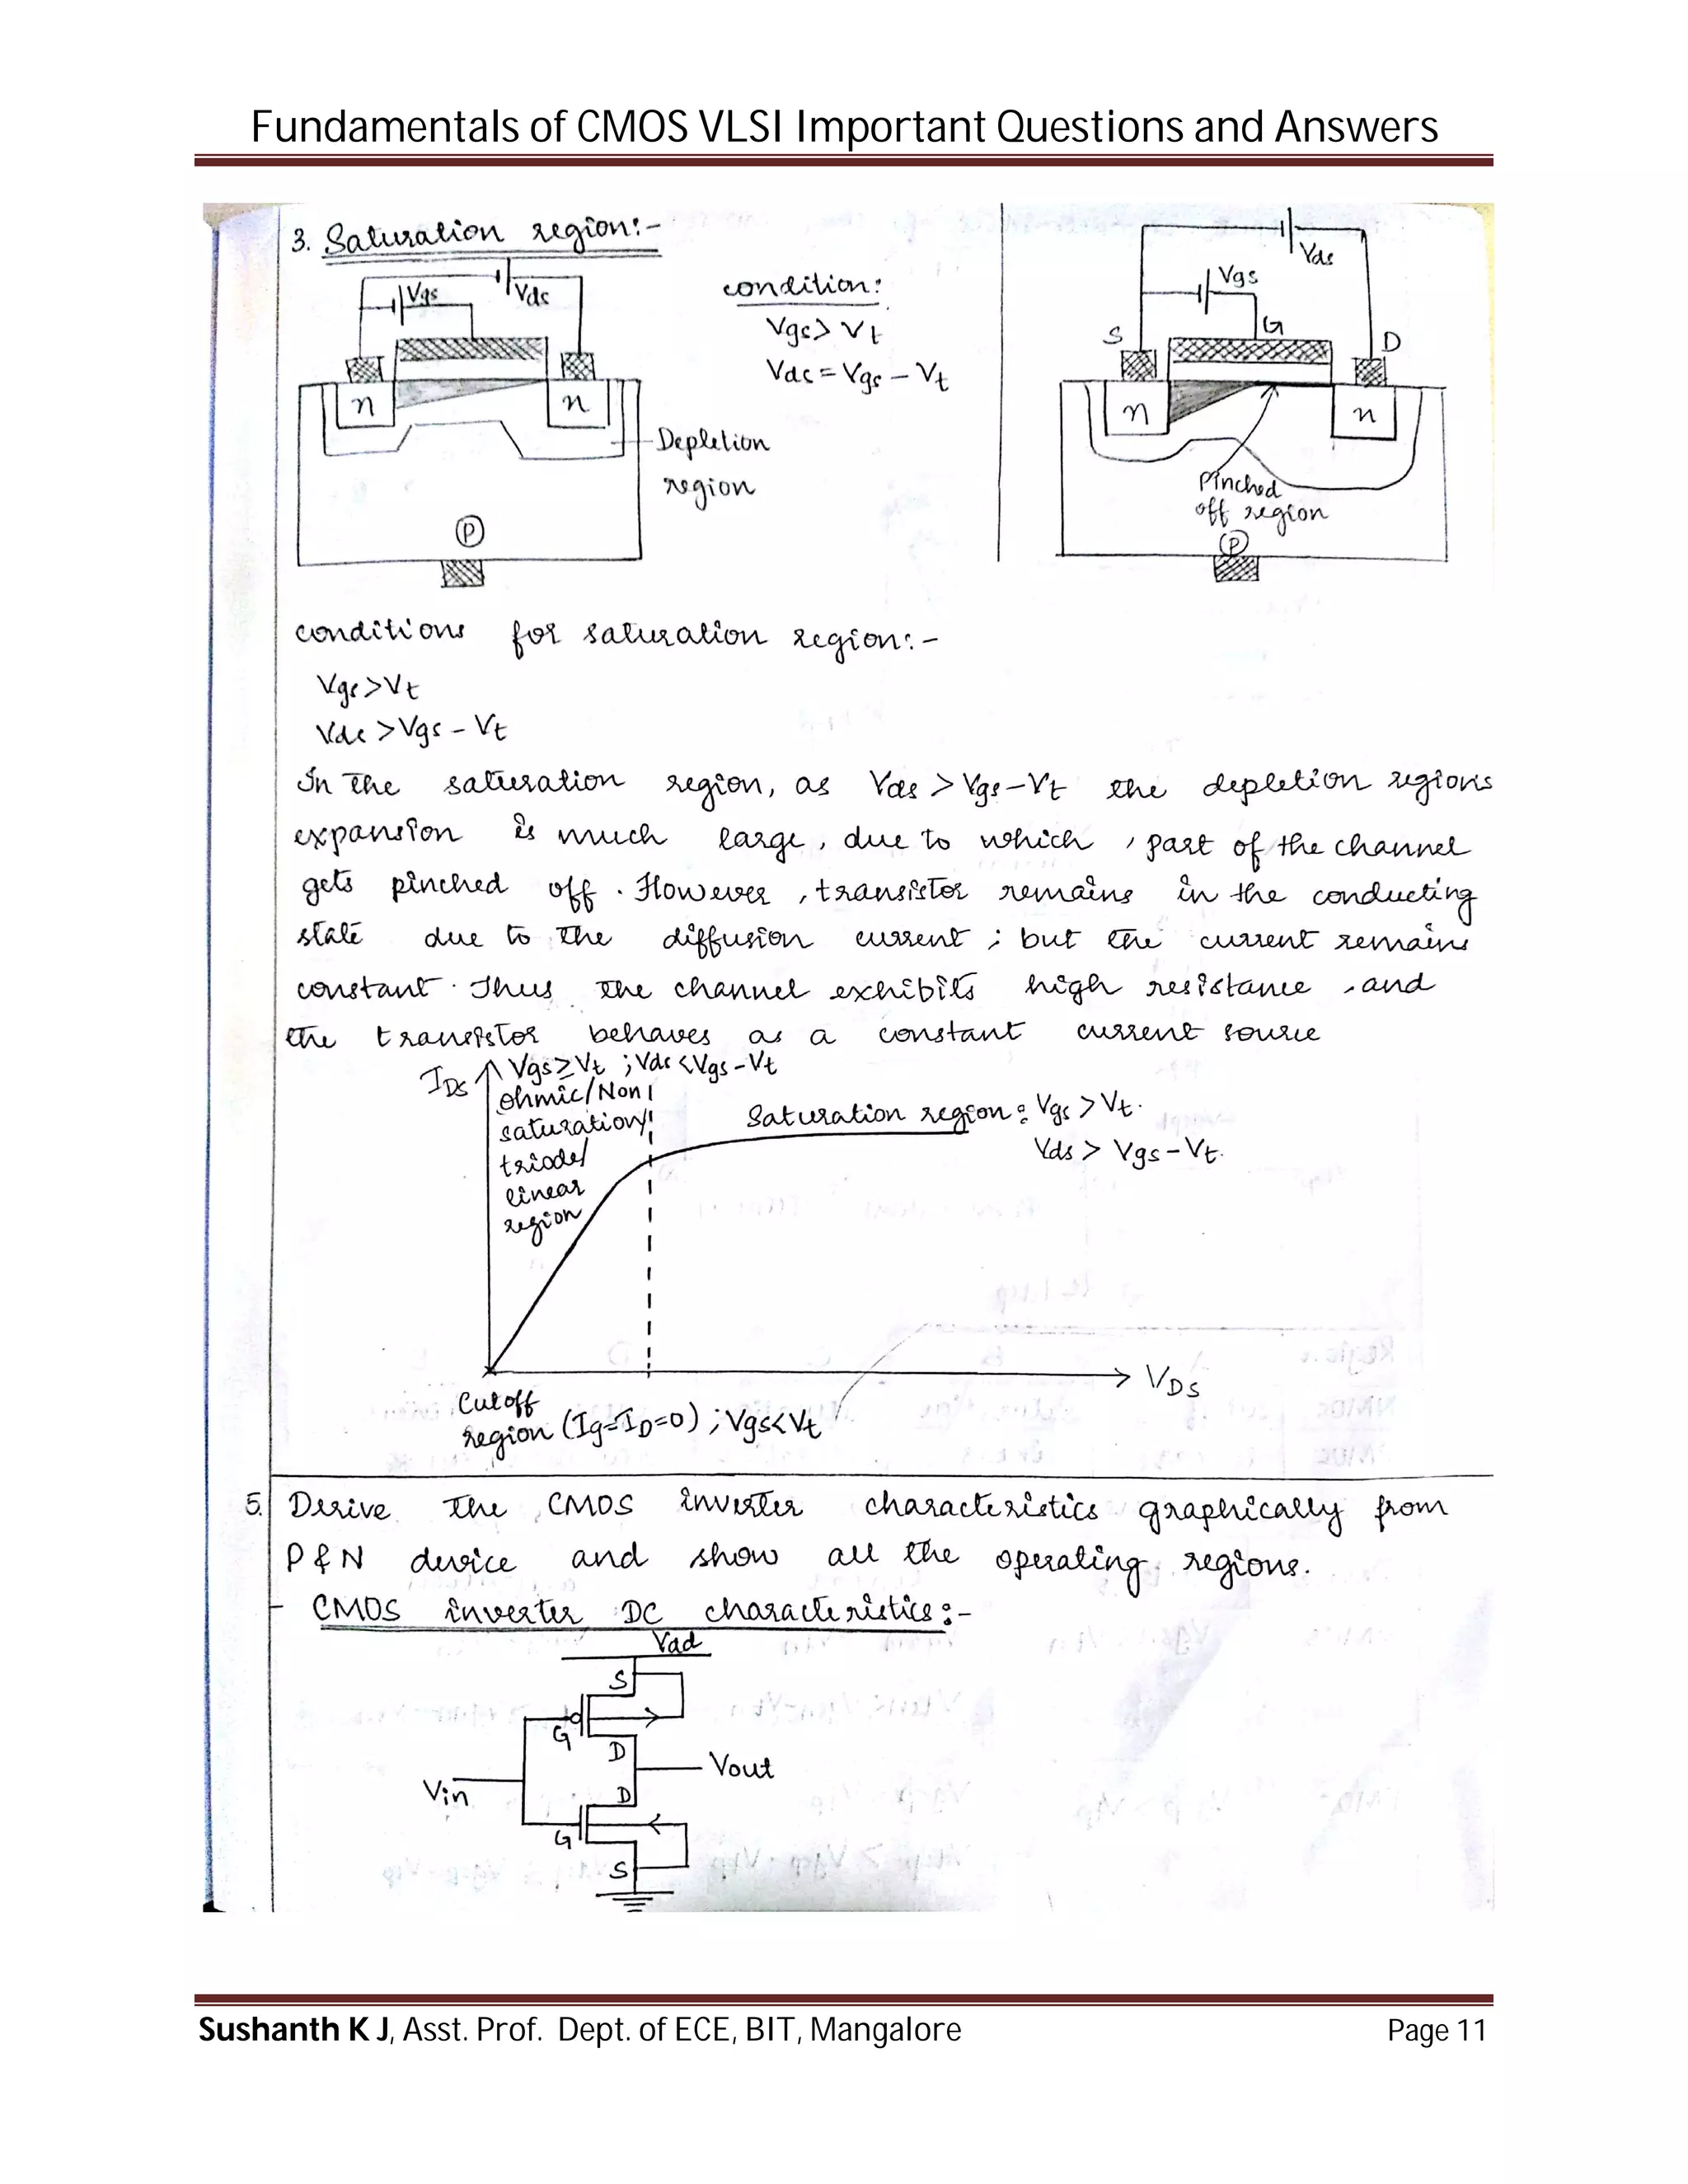 Fundamentals of CMOS VLSI Important Questions and Answers
3. Saturation region:-
Vgs
Vds
n
n
Depletion
region
P
condition:
Vgs > Vt
Vds = Vgs - Vt
Vds
Vgs
S
G
D
n
n
Pinched
off region
P
conditions for saturation region:-
Vgs > Vt
Vds > Vgs - Vt
In the saturation region, as Vds > Vgs - Vt the depletion regions
expansion is much large, due to which, part of the channel
gets pinched off. However, transistor remains in the conducting
state due to the diffusion current; but the current remains
constant. Thus the channel exhibits high resistance, and
the transistor behaves as a constant current source
IDS
Vgs ≥ Vt ; Vds < Vgs - Vt
ohmic/Non
saturation/
triode/
linear
region
Saturation region: Vgs > Vt.
Vds > Vgs - Vt.
VDS
Cutoff
region (Ig=ID=0) ; Vgs < Vt
5. Derive the CMOS inverter characteristics graphically from
P & N device and show all the operating regions.
- CMOS inverter DC characteristics:-
Vdd
S
G
D
Vout
Vin
D
G
S
Sushanth K J, Asst. Prof. Dept. of ECE, BIT, Mangalore
Page 11